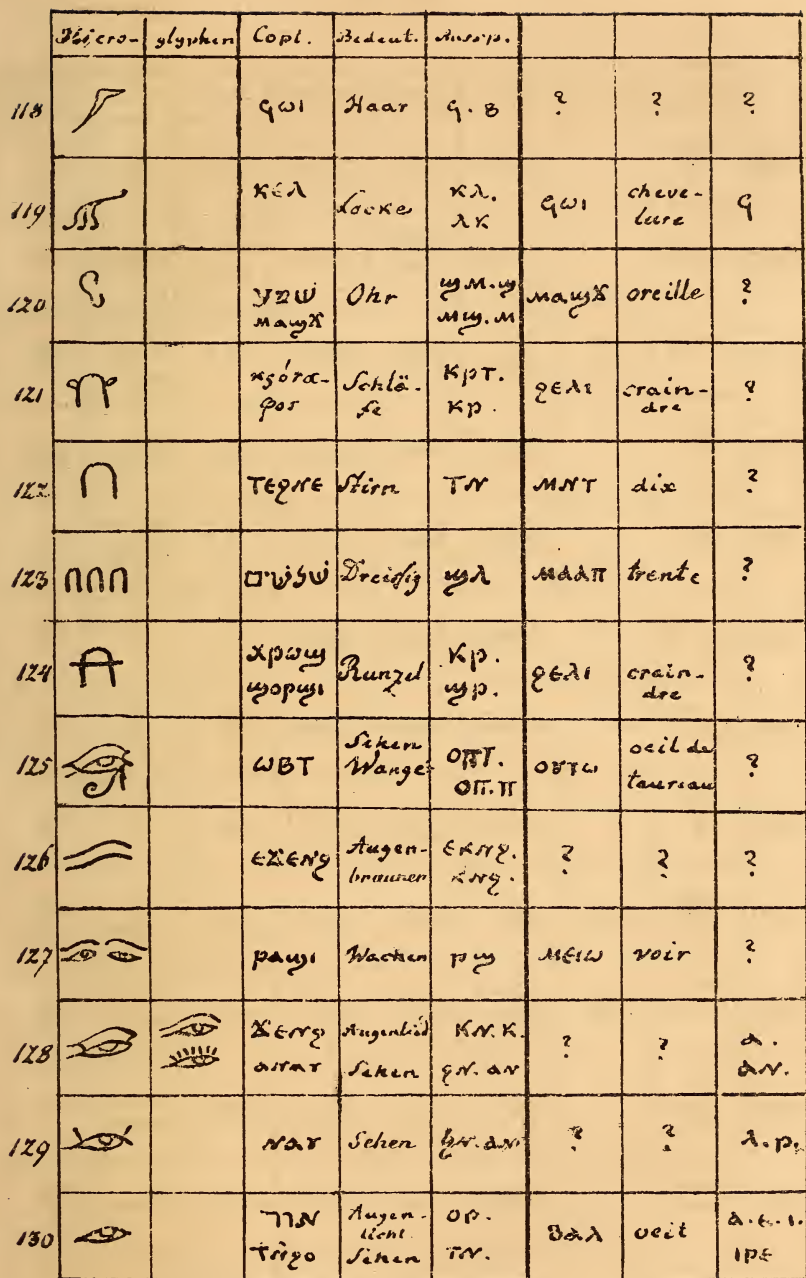 Hiero- glyphen Copt. Bedeut. Aussp.
118 ϥωι Haar ϥ. ? ? ?
119 κελ Locke κλ. λκ ϥωι cheve- lure ϥ
120 שמע ⲙⲁϣϫ Ohr ϣⲙ.ϣ ⲙϣ.ⲙ ⲙⲁϣϫ oreille ?
121 κρότα- φος Schlä- fe ⲕⲣⲧ. ⲕⲣ. ϩⲉⲗⲓ crain- dre ?
122 ⲧⲉϩⲛⲉ Stirn ⲧⲛ ⲙⲛⲧ dix ?
123 שלשים Dreißig ϣⲗ ⲙⲁⲁⲡ trente ?
124 ⲭⲣⲱϣ ϣⲟⲣϣⲓ Runzel ⲕⲣ. ϣⲣ. ϩⲉⲗⲓ crain- dre ?
125 ⲱⲃⲧ Sehen Wange ⲟⲡⲧ. ⲟⲡ.ⲡ oeil de taureau ?
126 ⲉϫⲉⲛϩ Augen- braunen ⲉⲕⲛϩ. ⲕⲛϩ. ? ? ?
127 ⲣⲁϣⲓ Wachen ⲣϣ ⲙⲉⲓⲱ voir ?
128 ϫⲉⲛϩ ⲁⲛⲁⲩ Augenlied Sehen ⲕⲛ.ⲕ. ϩⲛ.ⲁⲛ ? ? ⲁ. ⲁⲛ.
129 ⲛⲁⲩ Sehen ϩⲛ.ⲁⲛ ? ? ⲁ.ⲣ.
130 Augen- licht Sehen ⲟⲣ. ⲧⲛ. ⲃⲁⲗ oeil ⲁ.ⲉ.ⲓ. ⲓⲣⲉ